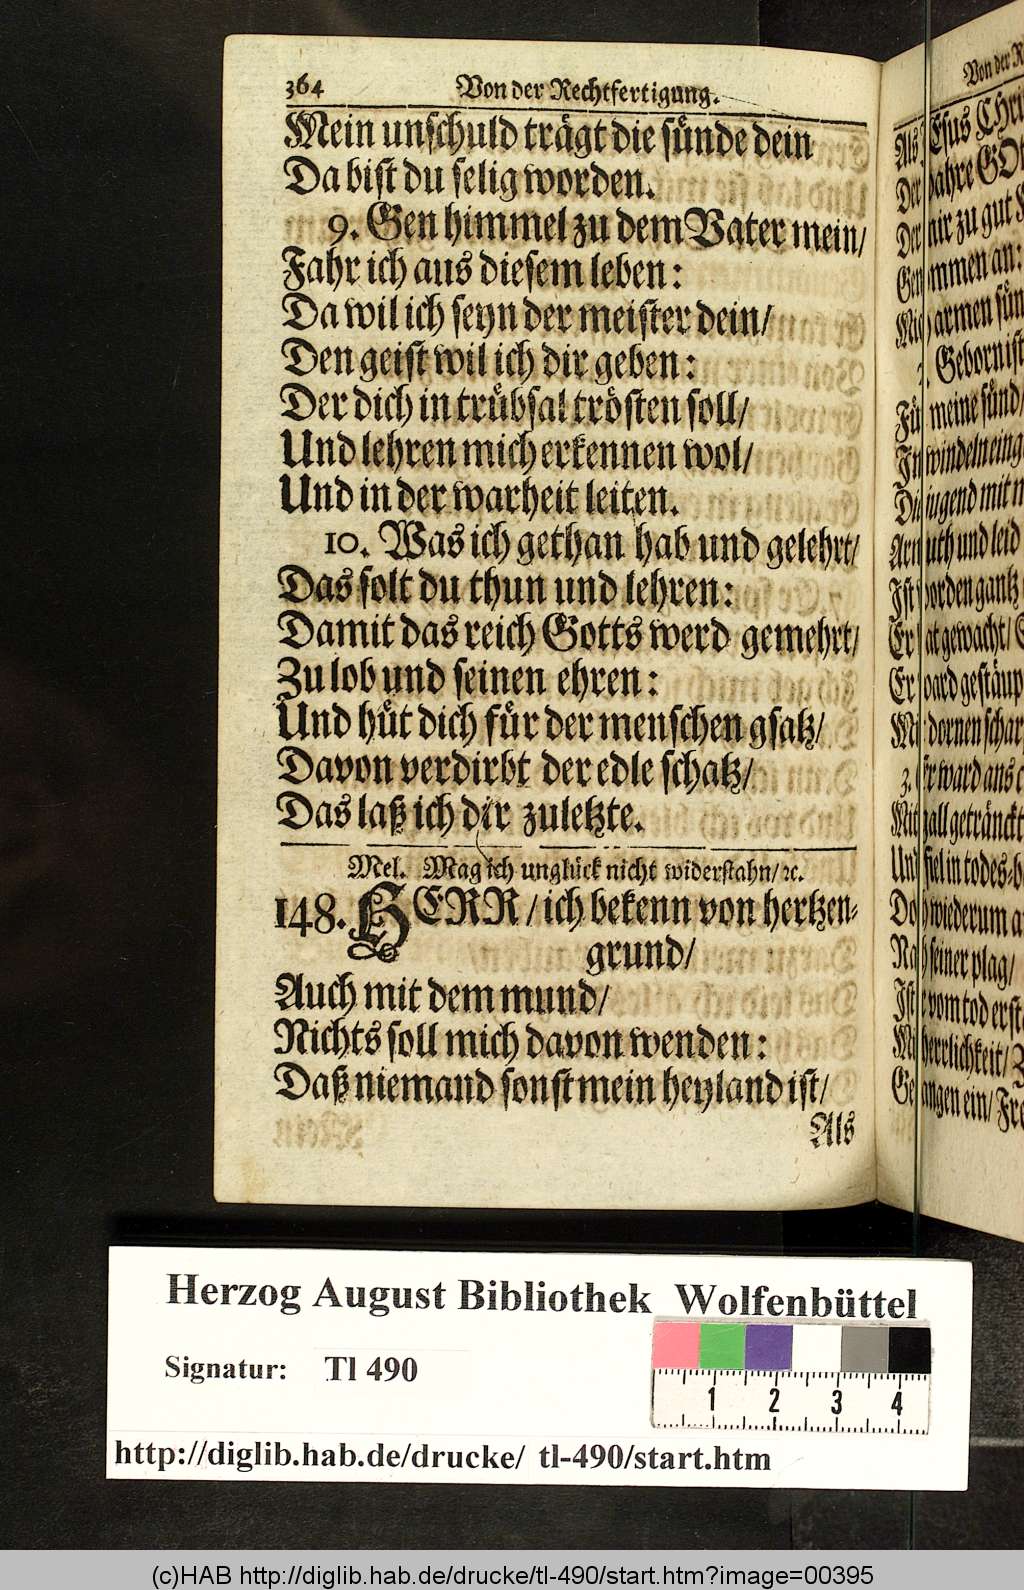 364 Von der Rechtfertigung.
Mein unschuld trägt die sünde dein
Da bist du selig worden.
9. Gen himmel zu dem Vater mein/
Fahr ich aus diesem leben:
Da wil ich seyn der meister dein/
Den geist wil ich dir geben:
Der dich in trübsal trösten soll/
Und lehren mich erkennen wol/
Und in der warheit leiten.
10. Was ich gethan hab und gelehrt/
Das solt du thun und lehren:
Damit das reich Gotts werd gemehrt/
Zu lob und seinen ehren:
Und hüt dich für der menschen gsatz/
Davon verdirbt der edle schatz/
Das laß ich dir zuletzte.
Mel. Mag ich unglück nicht widerstahn/ ꝛc.
148. HERR/ ich bekenn von hertzen-
grund/
Auch mit dem mund/
Nichts soll mich davon wenden:
Daß niemand sonst mein heyland ist/
Als
Von der
Als Esus
Der GO
Der mir zu gut
ommen an:
armen
Geborn ist
meine sünd/
In windeln
jugend mit
uth und leid
Ist worden gantz
Er gewacht/
Er ward
dornen
3. Er ward ans
Mit gall getränckt
Und fiel in todes-
wiederum
Nach seiner plag/
Ist vom tod
herrlichkeit/
Gegangen ein/
Herzog August Bibliothek Wolfenbüttel
Signatur: Tl 490
1 2 3 4
http://diglib.hab.de/drucke/ tl-490/start.htm
(c)HAB http://diglib.hab.de/drucke/tl-490/start.htm?image=00395